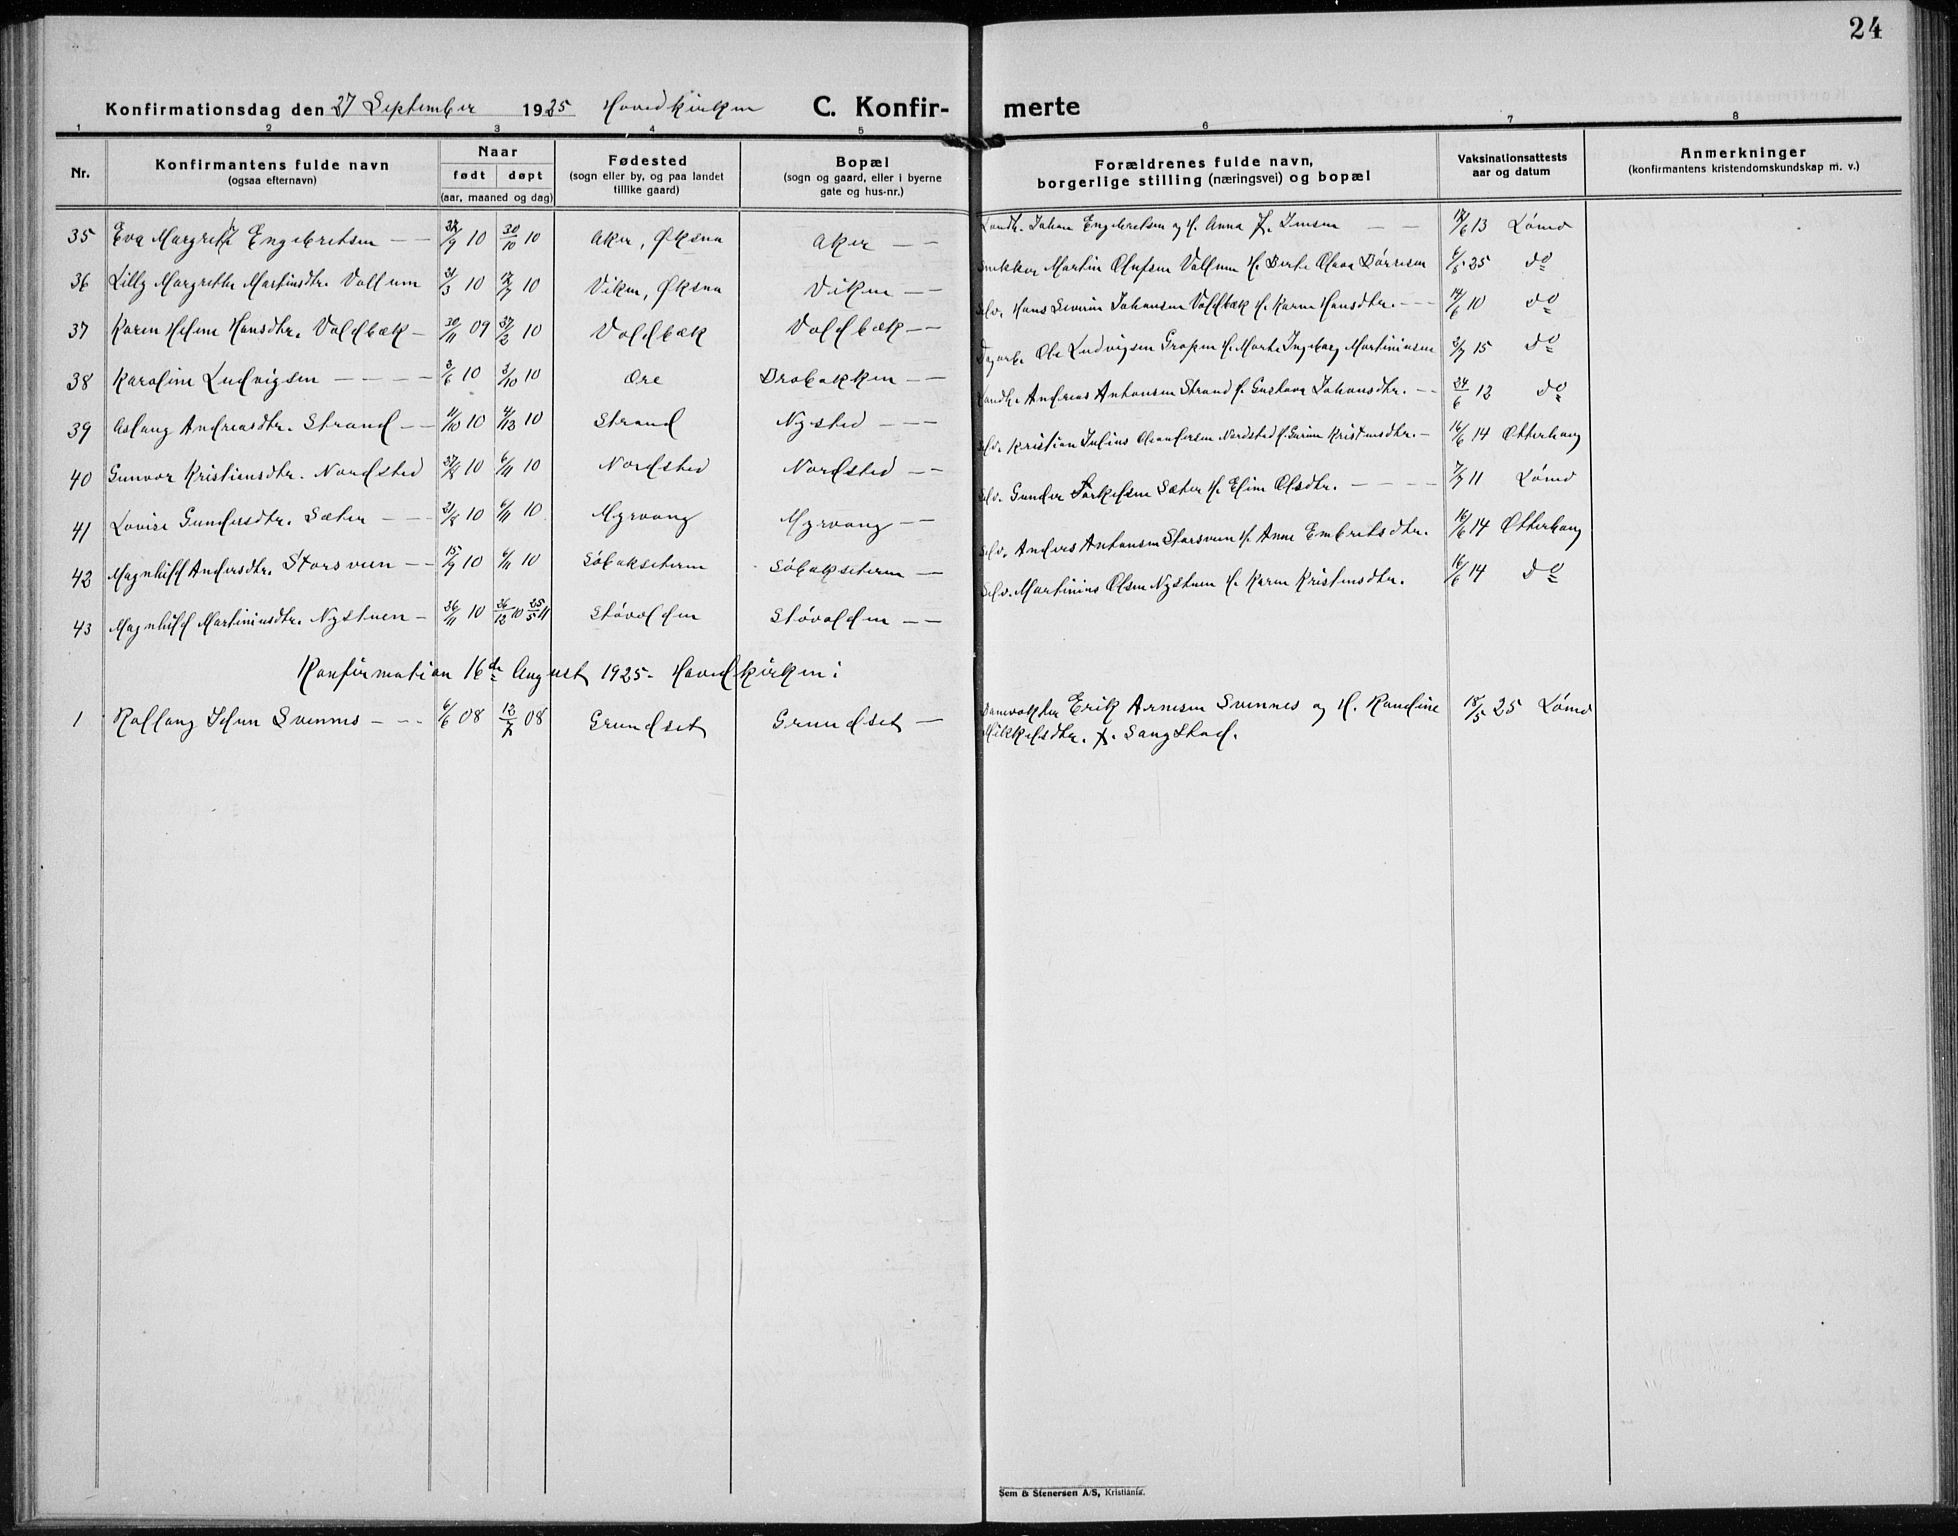 24
Konfirmationsdag den 27 September 1925 Hovedkirken C. Konfir- merte
1 2 3 4 5 6 7 8
Nr. Konfirmantens fulde navn (ogsaa efternavn) Naar født døpt (aar, maaned og dag) Fødested (sogn eller by, og paa landet tillike gaard) Bopæl (sogn og gaard, eller i byerne gate og hus-nr.) Forældrenes fulde navn, borgerlige stilling (næringsvei) og bopæl Vaksinationsattests aar og datum Anmerkninger (konfirmantens kristendomskundskap m. v.)
35 Eva Margrethe Engebretsen — — /9 10 30/10 10 Aker, Øksna Aker — — Landh. Johan Engebretsen og H. Anna J. Jensen — — /6 13 Lømo
36 Lilly Margrethe Martinsdtr. Vollum /3 10 17/7 10 Viken, Øksna Viken — — Snekker Martin Olufsen Vollum H. Berte Olava Børresen 6/6 25 do
37 Karen Helene Hansdtr. Voldbæk — 30/11 09 27/2 10 Voldbæk Voldbæk — — Selv. Hans Severin Johansen Voldbæk H. Karen Hansdtr. — — 14/6 10 do
38 Karoline Ludvigsen — — — — 3/6 10 3/10 10 Øre Brobakken — — Dagarb. Ole Ludvigsen H. Marte Ingeborg Martiniusen 2/7 15 do
39 Aslaug Andreasdtr. Strand — — 11/10 10 4/12 10 Strand Nysted — — — Landh. Andreas Antonsen Strand H. Gustava Johansdtr. — — 24/6 12 do
40 Gunvor Kristiansdtr. Nordsted 27/8 10 6/11 10 Nordsted Nordsted — — Selv. Kristian Julius Oleandersen Nordsted H. Kristensdtr. — 16/6 14 Otterhaug
41 Lovise Gundersdtr. Sæter — — /8 10 6/11 10 Myrvang Myrvang — — Selv. Gunder Torkelsen Sæter H. Eline Olsdtr. — — — — 7/7 11 Lømo
42 Magnhild Andersdtr. Storsveen — — 15/9 10 6/11 10 Søbakseteren Søbakseteren — — Selv. Anders Antonsen Storsveen H. Anne Embretsdtr. 16/6 14 Otterhaug
43 Magnhild Martiniusdtr. Nystuen — 26/11 10 26/12 10 25/5 11 Støvolden Støvolden — — Selv. Martinius Olsen Nystuen H. Karen Kristensdtr. 16/6 14 do
Konfirmation 16de August 1925 - Hovedkirken:
1 Rollaug Johan Svennes — — — 6/6 08 12/7 08 Grundset Grundset — Banevokter Erik Arnesen Svennes og H. Randine 18/5 25 Lømo
Mikkelsdtr. f. Sangstad.
Sem & Stenersen A/S, Kristiania.